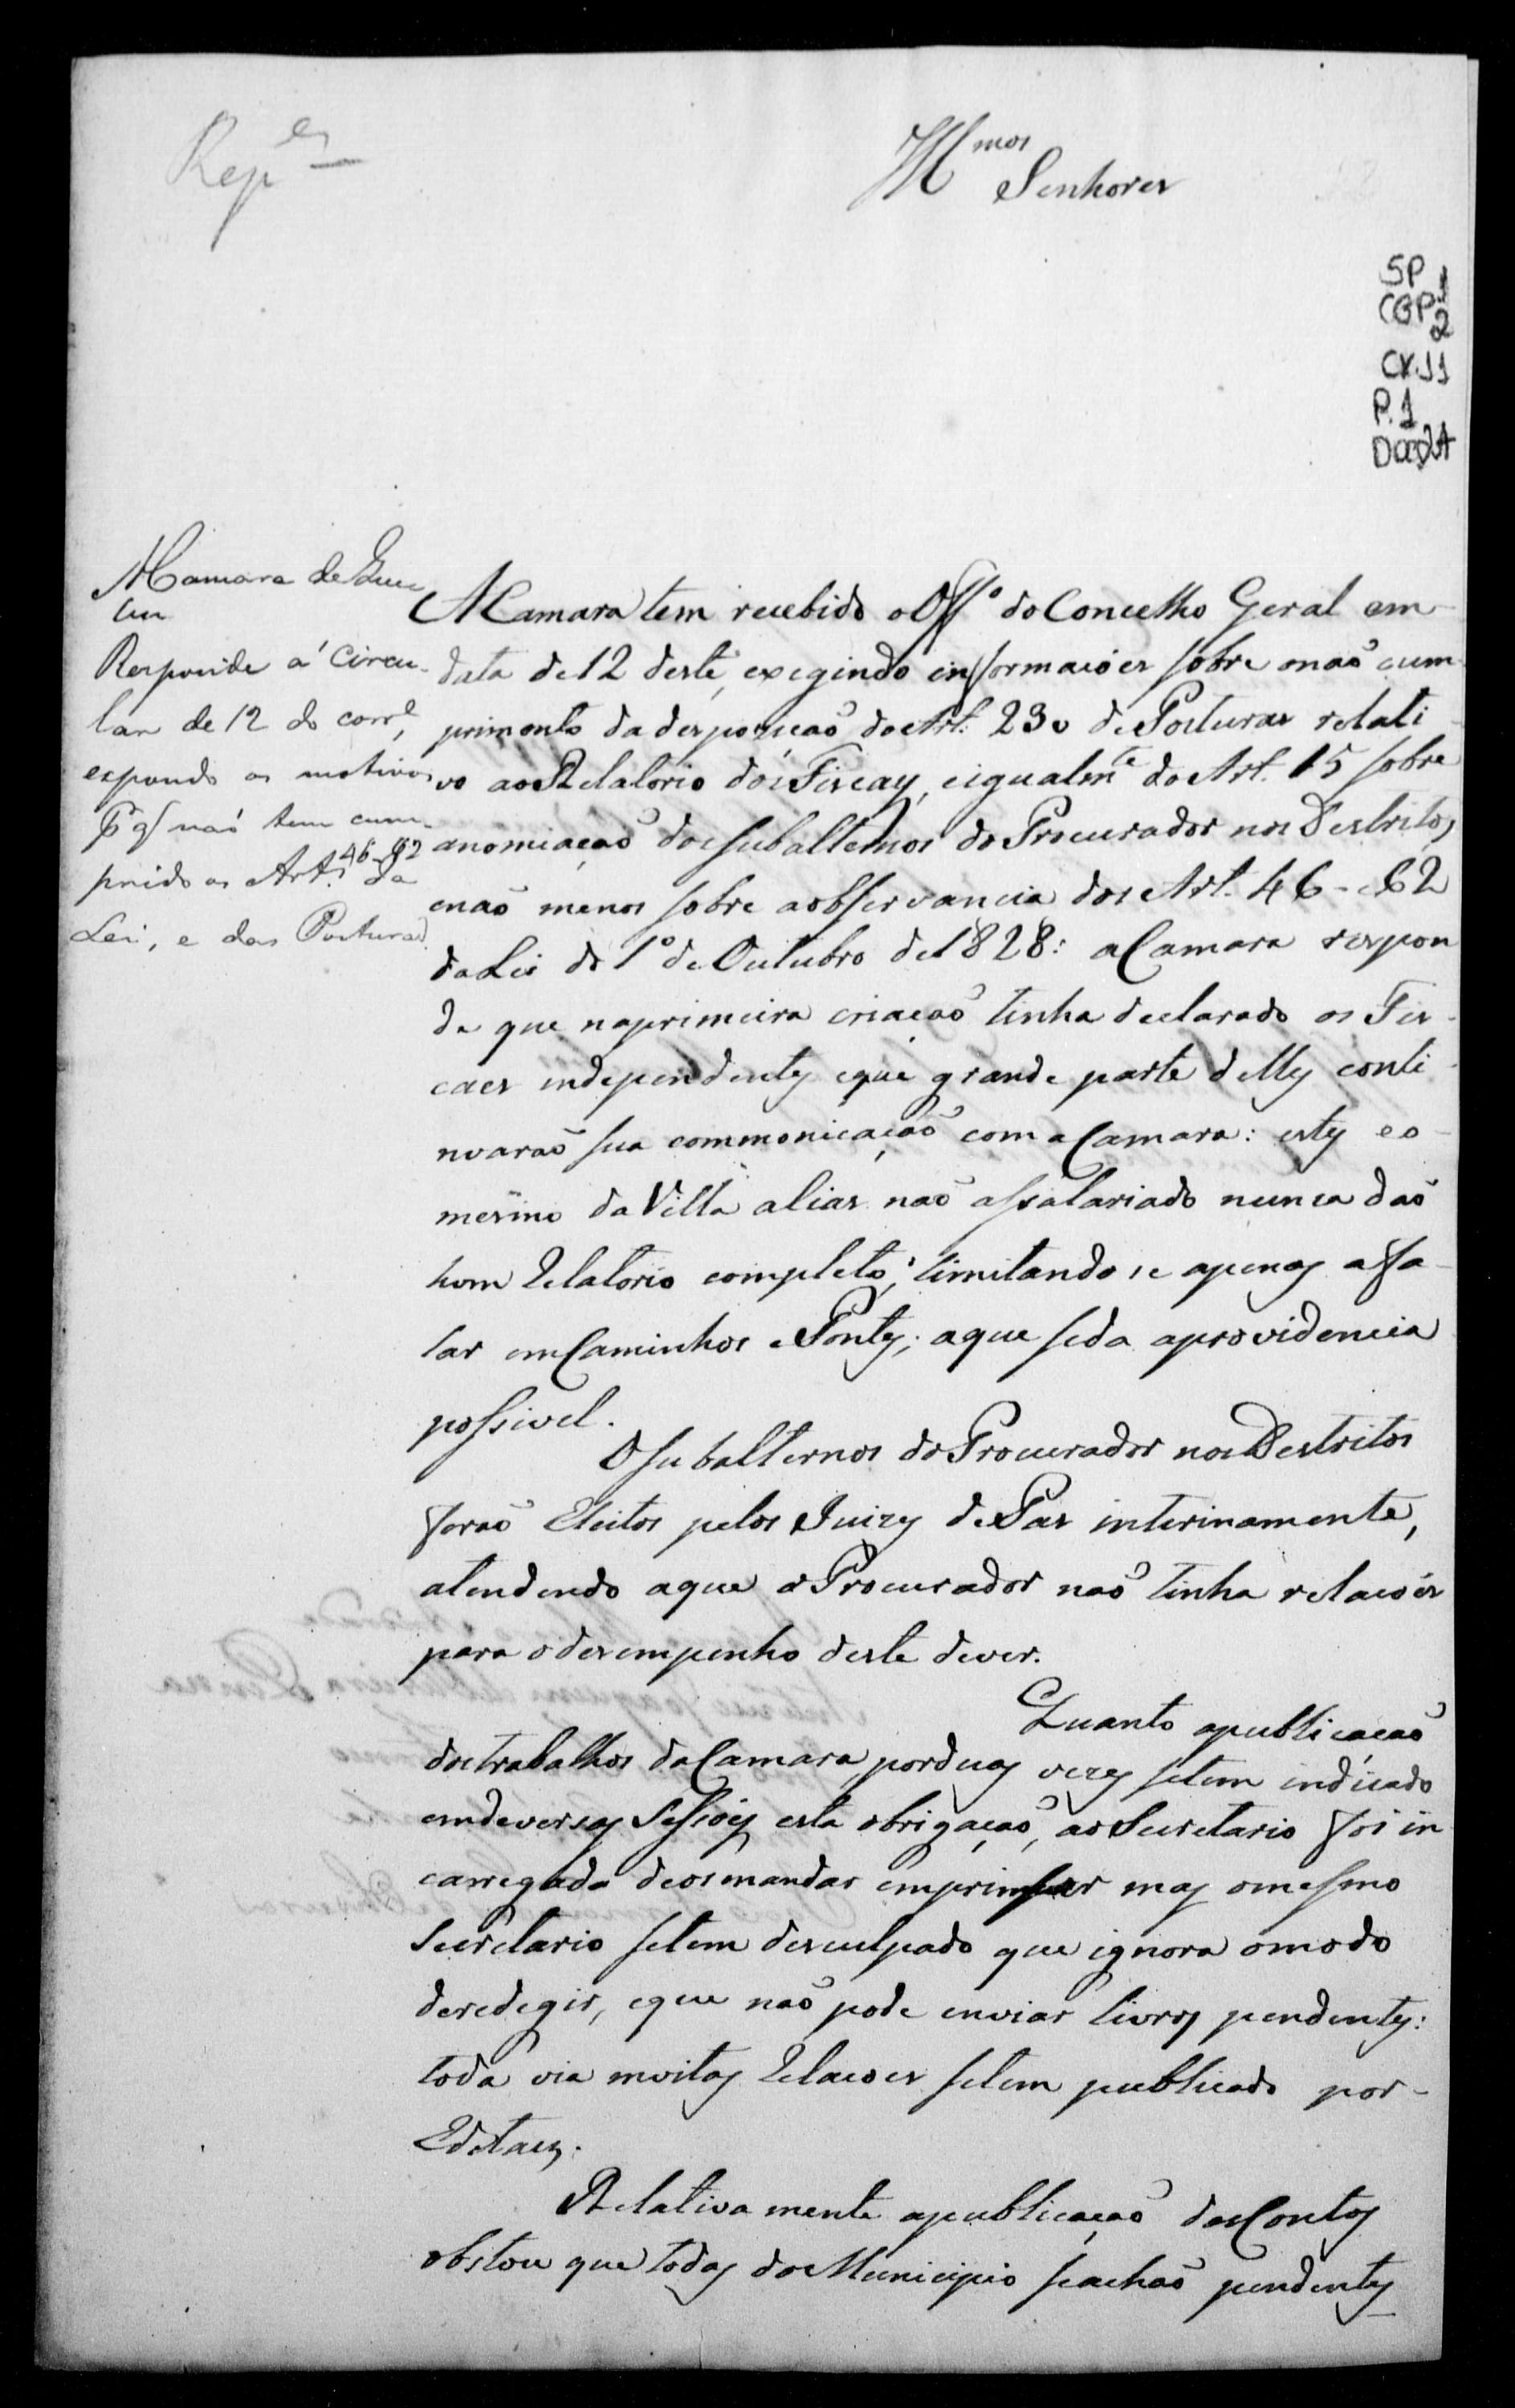 Rep.es
Illmos Senhores
SP 1
CGP 2
CX.11
P.1
A Camara de
Responde á Circu-
lar de 12 do corre,
expondo os motivos
pr q' naõ tem cum-
prido os Arts 46 - 62 da
Lei, e das Posturas.
A Camara tem recebido o Offo do Concelho Geral em
data de 12 deste, exegindo informacoẽs sobre o naõ cum
primento da desposicaõ do Art. 230 de Posturas relati
vo ao Relatorio dos Fiscaes, e igualmte do Art. 15 sobre
a nomiaçaõ dos subalternos do Procurador nos Destritos,
e naõ menos sobre a observancia dos Art. 46 - e 62
da Lei do 1o de Outubro de 1828: a Camara respon
de que na primeira criacaõ tinha declarado os Fis-
caes independentes e que grande parte delles conti
nuaraõ sua commonicaçaõ com a Camara: estes e o
mesmo da Villa alias naõ assalariado nunca daõ
hum Relatorio completo; limitando se apenas a fa-
lar em Caminhos e Pontes; a que se da a providencia
possivel.
O subalternos do Procurador nos Destritos
foraõ Eleitos pelos Juizes de Paz interinamente,
atendendo a que o Procurador naõ tinha relacoẽs
para o desempenho deste dever.
Quanto a publicacaõ
dos trabalhos da Camara, por duas vezes se tem indicado
em deversas Sessoẽs esta obrigaçaõ, ao Secretario foi in
carregado de os mandar emprimir mas o mesmo
Secretario se tem desculpado que ignora o modo
de redegir, e que naõ pode enviar livros pendentes:
toda via muitas Relacoes se tem publicado por-
Editaes.
Relativa mente a publicaçaõ das Contas
obstou que todas do Municipio se achaõ pendentes